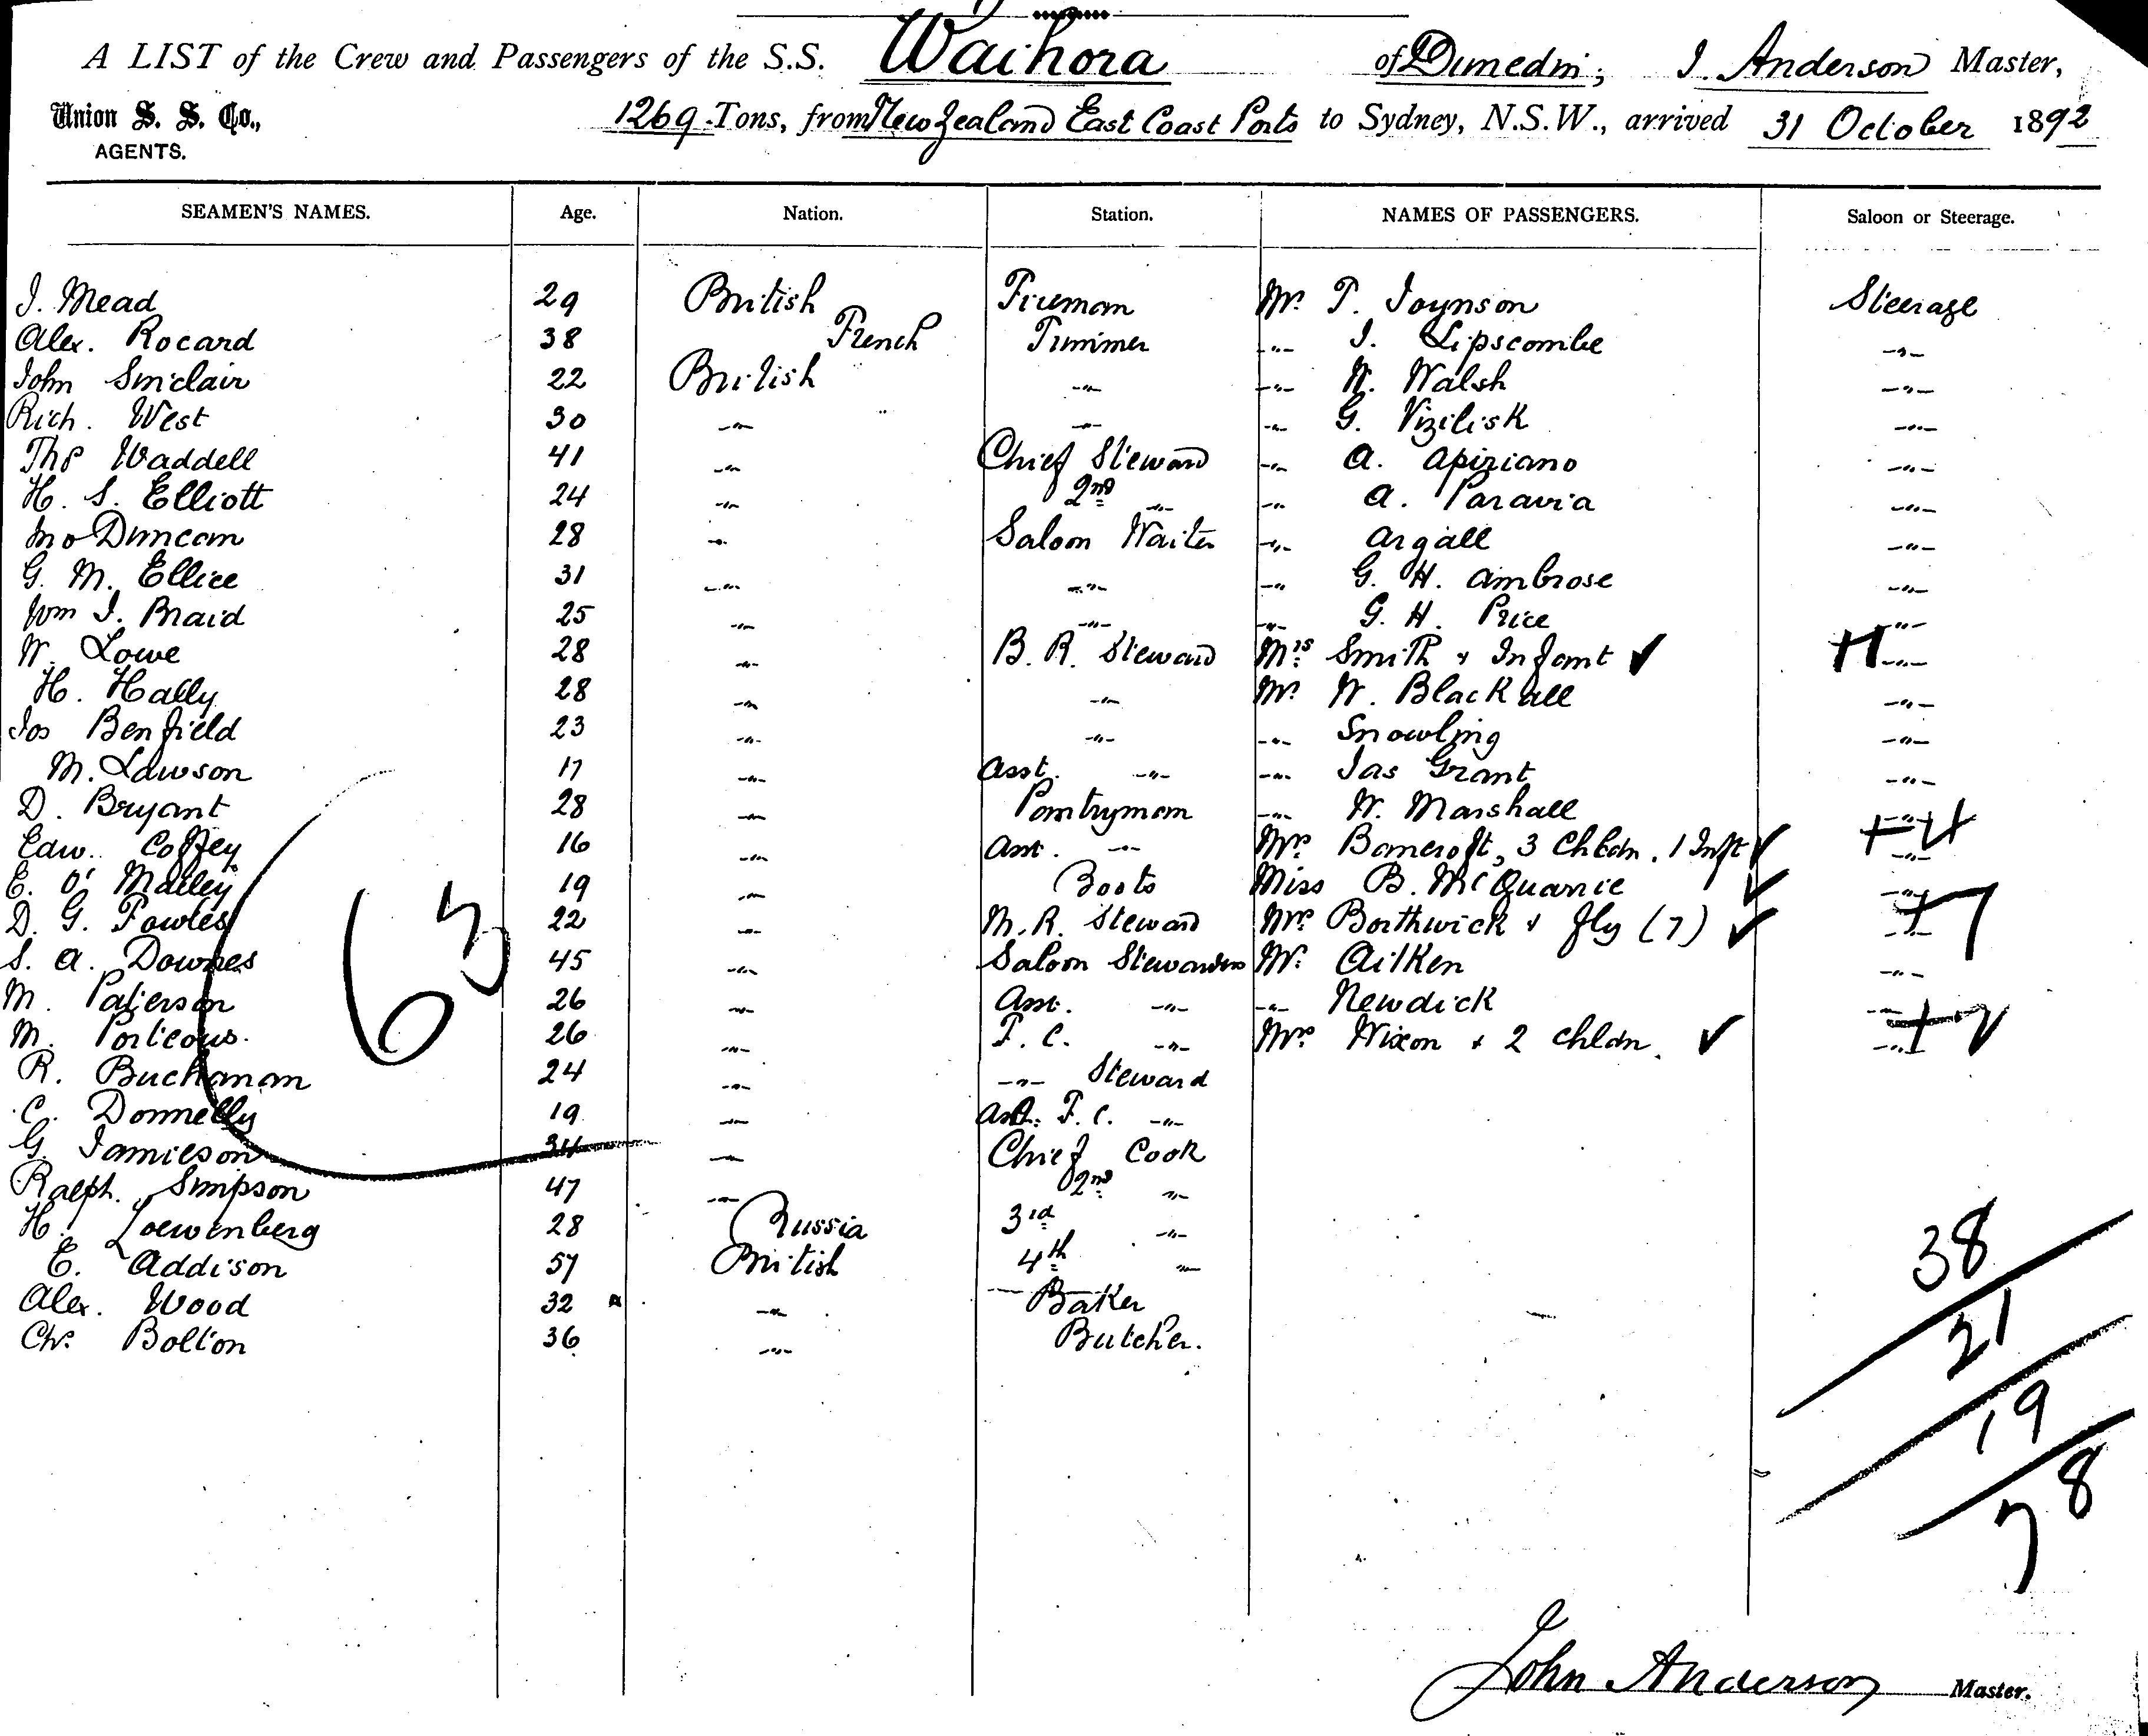 A LIST of the Crew and Passengers of the S.S. Waihora of Dunedin, J. Anderson Master,
Union S. S. Co.,
AGENTS.
1269 Tons, from New Zealand East Coast Ports to Sydney, N.S.W., arrived 31 October 1892
SEAMEN'S NAMES. Age. Nation. Station. NAMES OF PASSENGERS. Saloon or Steerage.
J. Mead 29 British Fireman Mr. T. Joynson Steerage
Alex. Rocard 38 French Trimmer -"- J. Lipscombe -"-
John Sinclair 22 British -"- -"- W. Walsh -"-
Rich. West 30 -"- -"- -"- G. Vizilisk -"-
Thos Waddell 41 -"- Chief Steward -"- A. Apiziano -"-
H. S. Elliott 24 -"- 2nd -"- -"- A. Paravia -"-
Jno Duncan 28 -"- Saloon Waiter -"- Argall -"-
G. M. Ellice 31 -"- -"- -"- G. H. Ambrose -"-
Wm J. Braid 25 -"- -"- -"- G. H. Price -"-
W. Lowe 28 -"- B. R. Steward Mrs Smith & Infant ✓ +1 -"-
H. Hally 28 -"- -"- Mr. W. Blackall -"-
Jos Benfield 23 -"- -"- -"- Snowling -"-
M. Lawson 17 -"- Asst. -"- -"- Jas Grant -"-
D. Bryant 28 -"- Pantryman -"- W. Marshall -"-
Edw. Coffey 16 -"- Asst. -"- Mrs Bancroft, 3 Chldn. 1 Inft ✓ +4 -"-
E. O'Malley 19 -"- Boots Miss B. McQuarrie ✓ -"-
D. G. Fowles 22 -"- M. R. Steward Mrs Borthwick & fly (7) ✓ +7 -"-
S. A. Downes 45 -"- Saloon Stewardess Mr. Aitken -"-
M. Paterson 26 -"- Asst. -"- -"- Newdick -"-
M. Porteous. 26 -"- F. C. -"- Mrs Nixon & 2 chldn. ✓ +2 -"-
R. Buchanan 24 -"- -"- Steward
C. Donnelly 19 -"- Asst. F. C. -"-
G. Jamieson 34 -"- Chief Cook
Ralph. Simpson 47 -"- 2nd -"-
H. Loewenberg 28 Russia 3rd -"-
E. Addison 57 British 4th -"-
Alex. Wood 32 -"- Baker
Chs. Bolton 36 -"- Butcher.
63
38
21
19
78
John Anderson Master.